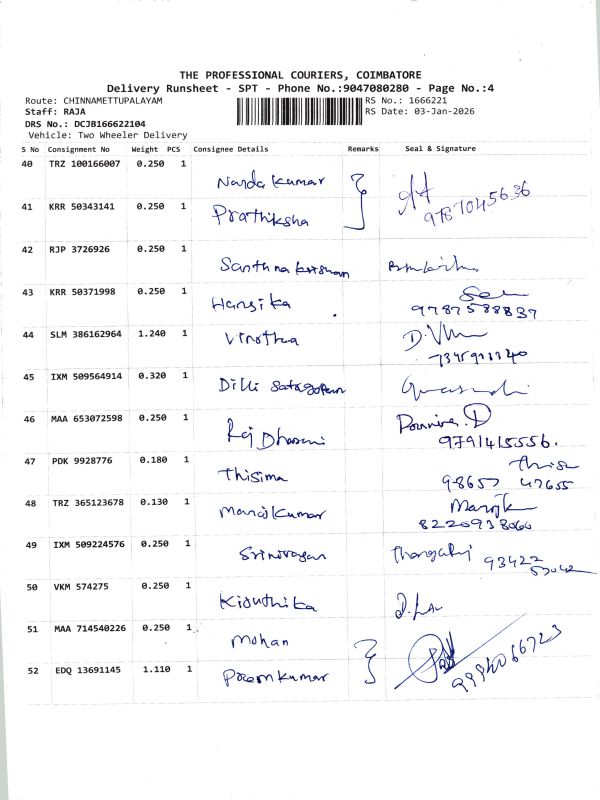 THE PROFESSIONAL COURIERS, COIMBATORE
Delivery Runsheet - SPT - Phone No.:9047080280 - Page No.:4
Route: CHINNAMETTUPALAYAM RS No.: 1666221
Staff: RAJA RS Date: 03-Jan-2026
DRS No.: DCJB166622104
Vehicle: Two Wheeler Delivery
S No Consignment No Weight PCS Consignee Details Remarks Seal & Signature
40 TRZ 100166007 0.250 1 Nanda Kumar
41 KRR 50343141 0.250 1 Prathiksha 9787045636
42 RJP 3726926 0.250 1 Santhna krishnan
43 KRR 50371998 0.250 1 Hansika 9787588837
44 SLM 386162964 1.240 1 Vinotha
45 IXM 509564914 0.320 1 Dilli
46 MAA 653072598 0.250 1 Raj Dharani 9791415556.
47 PDK 9928776 0.180 1 Thisima 98657 47655
48 TRZ 365123678 0.130 1 Manoj Kumar 8220938066
49 IXM 509224576 0.250 1 Srinivasan 93422
50 VKM 574275 0.250 1 Kiruthika
51 MAA 714540226 0.250 1 Mohan
52 EDQ 13691145 1.110 1 Prem Kumar